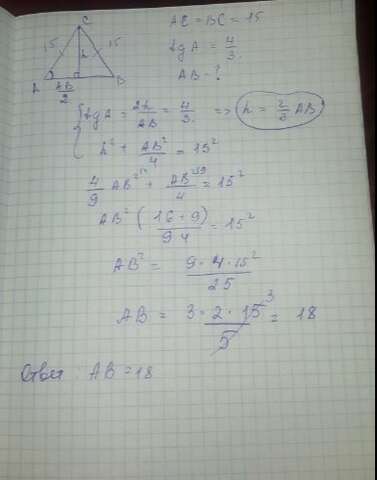 AC = BC = 15
tg A = 4/3.
AB - ?
C
15 15
h
A B
AB/2
{ tg A = 2h/AB = 4/3. => h = 2/3 AB
h² + AB²/4 = 15²
4/9 AB² + AB²/4 = 15²
AB² (16+9)/(9 4) = 15²
AB² = 9·4·15²/25
AB = 3·2·15³/5 = 18
Ответ: AB = 18